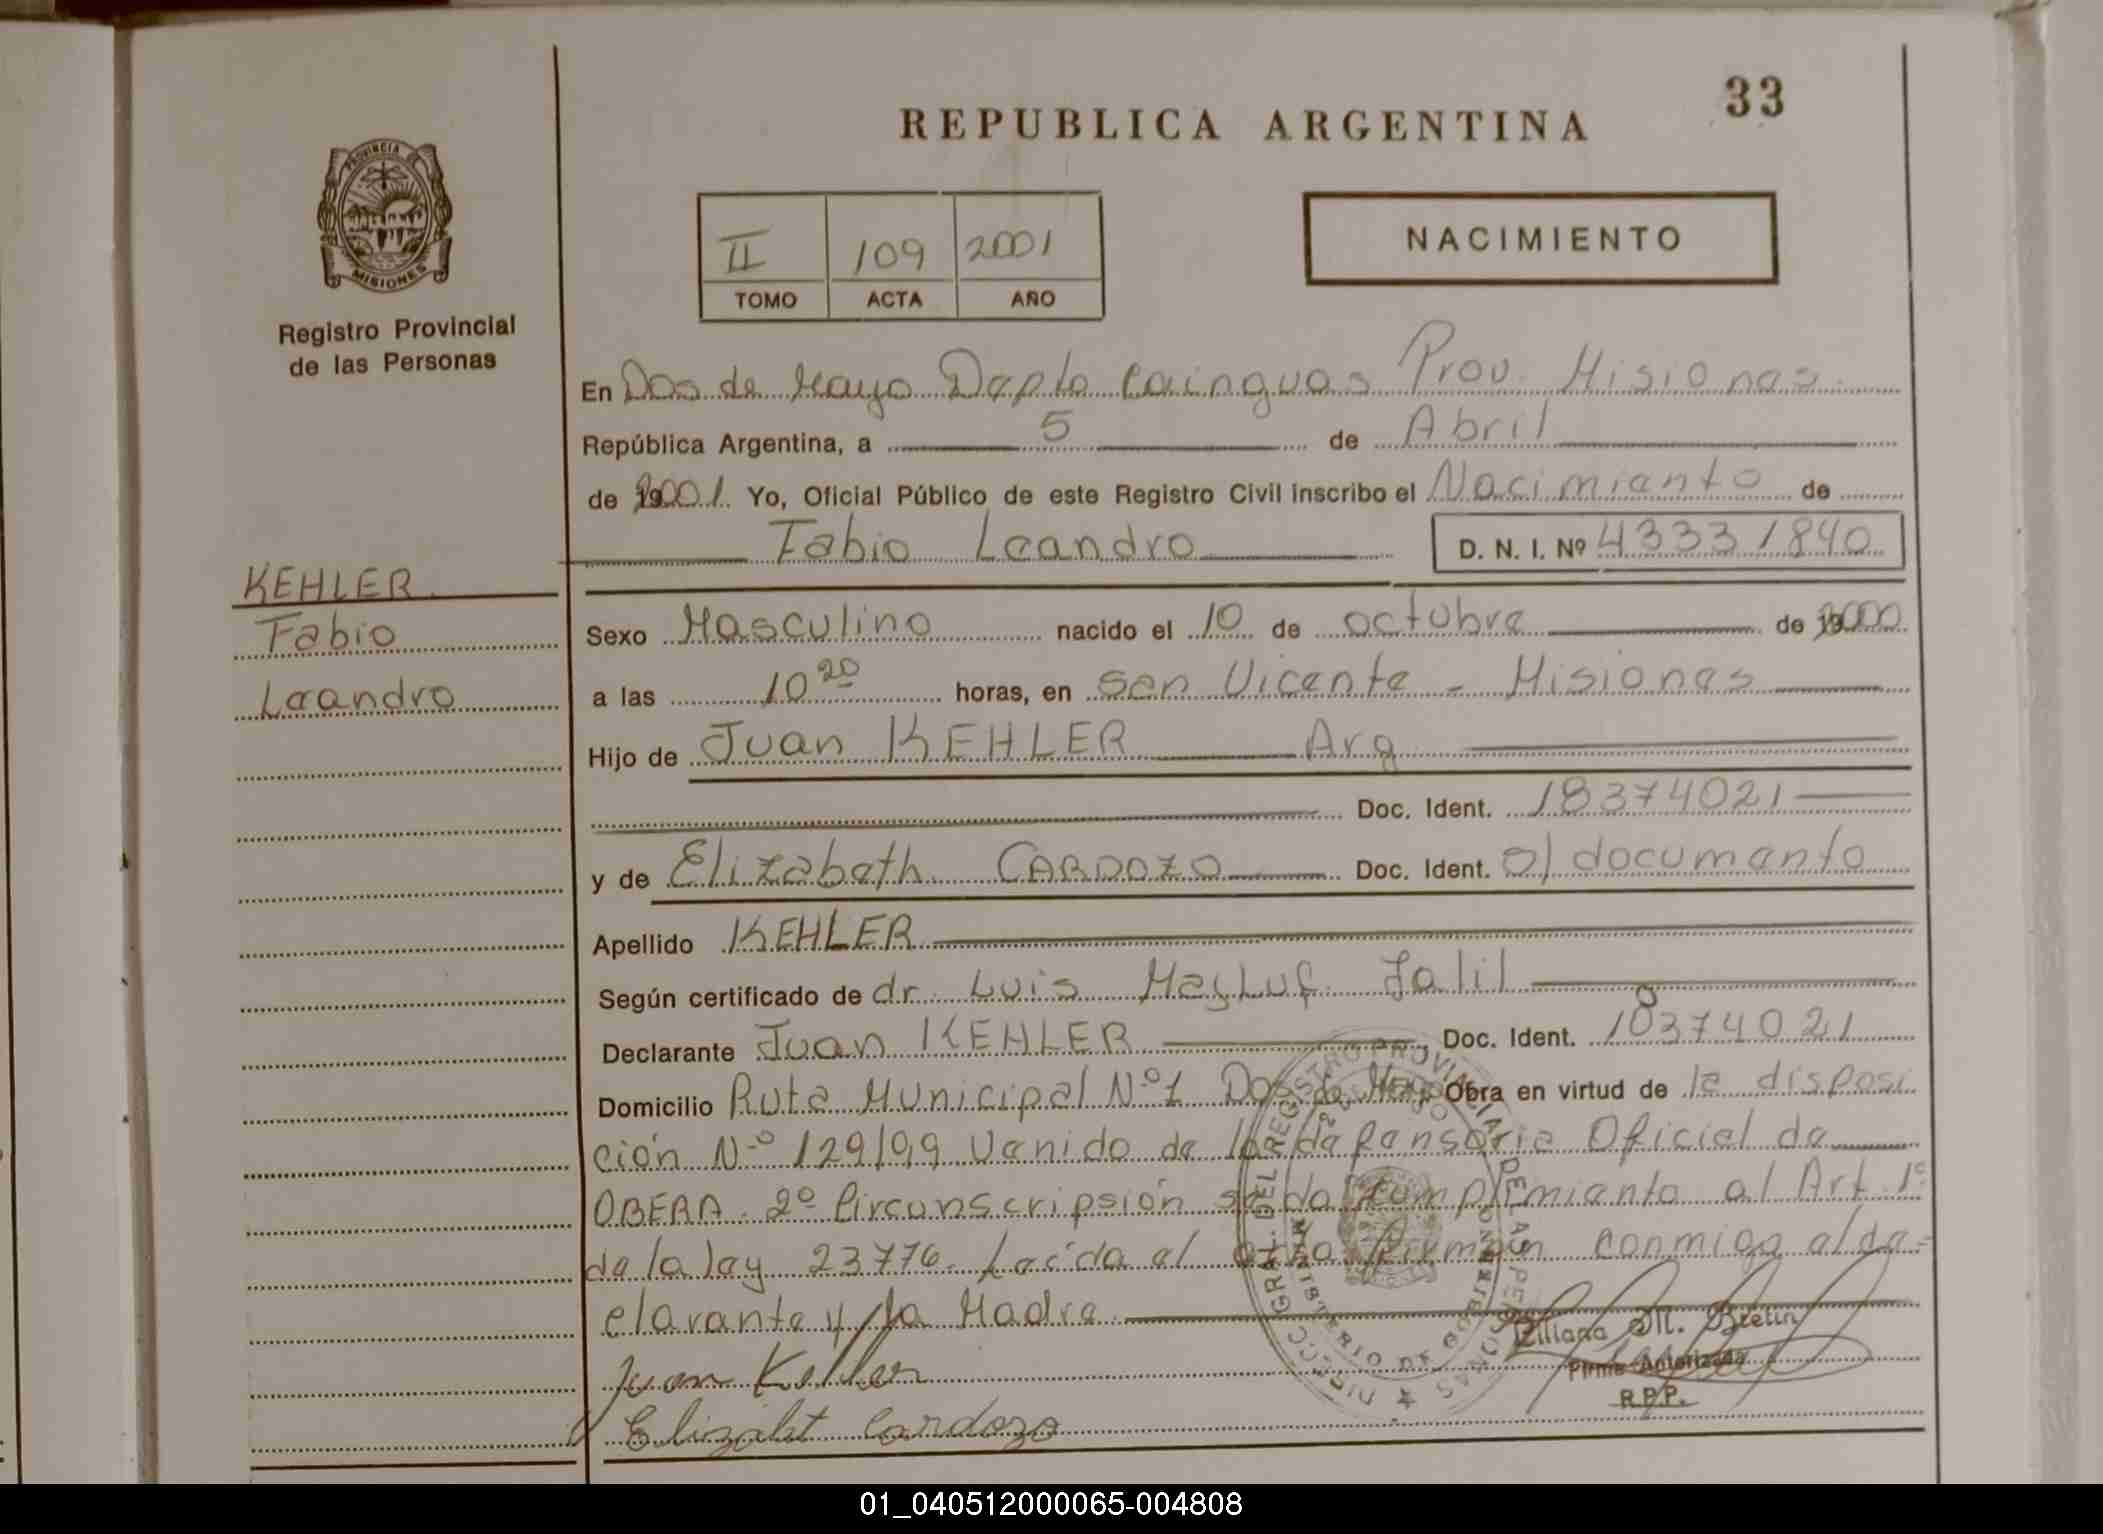 33
REPUBLICA ARGENTINA
PROVINCIA DE
MISIONES
Registro Provincial
de las Personas
II 109 2001
TOMO ACTA AÑO
NACIMIENTO
En Dos de Mayo Depto Cainguas Prov. Misiones
República Argentina, a 5 de Abril
de 2001. Yo, Oficial Público de este Registro Civil inscribo el Nacimiento de
Fabio Leandro D. N. I. Nº 43331840
KEHLER
Fabio
Leandro
Sexo Masculino nacido el 10 de octubre de 2000
a las 10 20 horas, en San Vicente - Misiones
Hijo de Juan KEHLER Arg
Doc. Ident. 18374021
y de Elizabeth CARDOZO Doc. Ident. s/documento
Apellido KEHLER
Según certificado de dr. Luis Mayluf Jalil
Declarante Juan KEHLER Doc. Ident. 18374021
Domicilio Ruta Municipal Nº1 Dos de Mayo Obra en virtud de la disposi
ción Nº 129/99 venido de la defensoria Oficial de
OBERA. 2º Circunscripsión se da cumplimiento al Art. 1º
de la ley 23776. Leída el acta firman conmigo el de=
clarante y la Madre
Juan Kehler
Elizabet Cardozo
Liliana M. Bretin
Firma Autorizada
R.P.P.
01_040512000065-004808